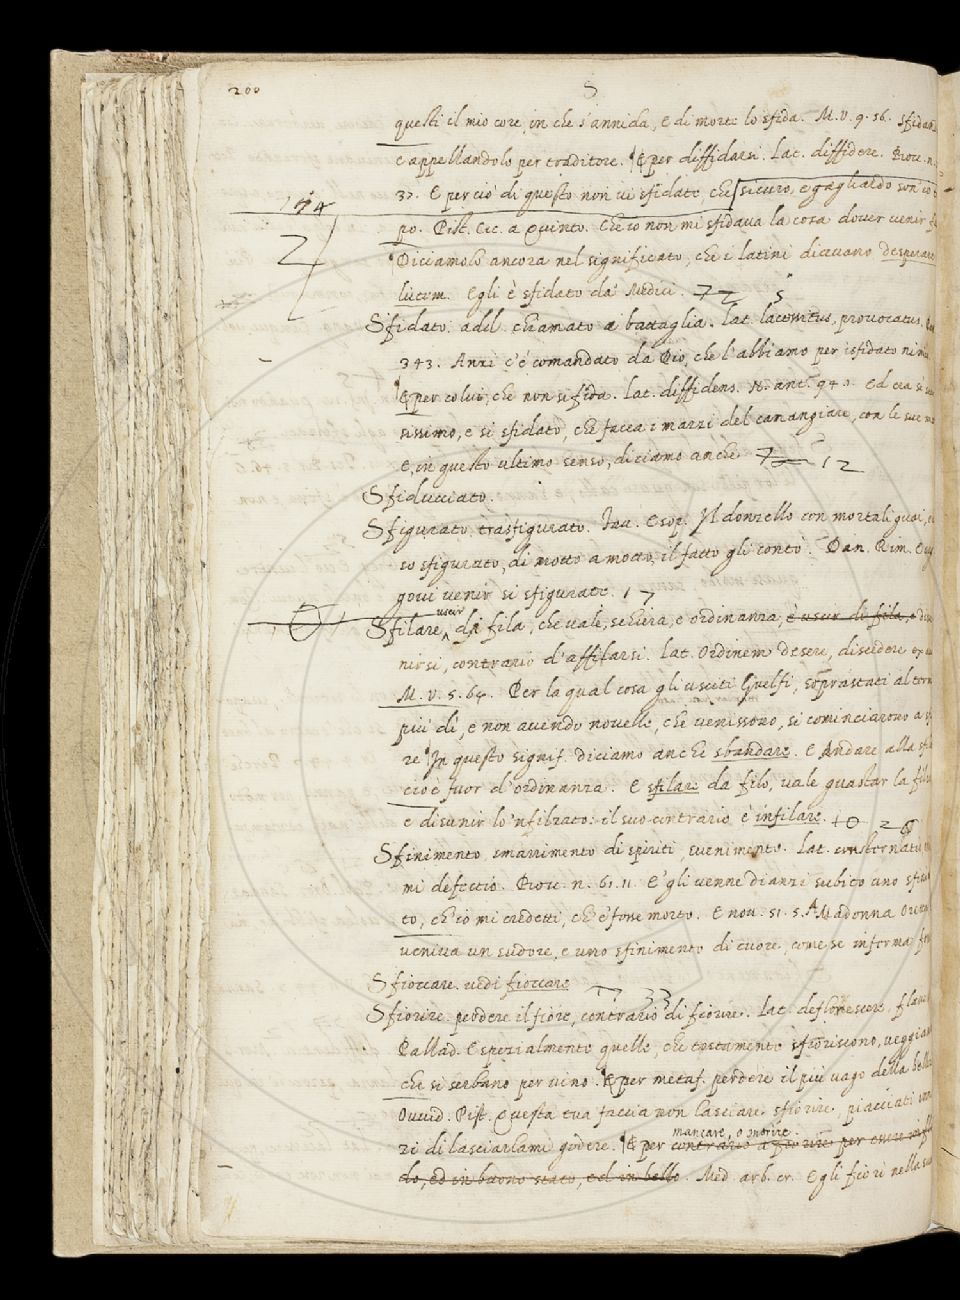 200
S
questi il mio core, in che s'annida, e di morte lo sfida. M. V. 9. 56. Sfidan
e appellandolo per traditore. E per diffidarsi. Lat. diffidere. Prov. n.
37. E perciò di questo non vi sfidate, che sicuro, e gagliardo son io
po. Pist. Cic. a Quinto. Che io non mi sfidava la cosa dover venir
Diciamolo ancora nel significato, che i latini dicevano desperare
194
2
lucem. Egli è sfidato da Medici. 72 5
Sfidato. add. chiamato a battaglia. lat. lacessitus, provocatus.
343. Anzi c'è comandato da Dio, che l'abbiamo per isfidato nimi
E per colui, che non si fida. Lat. diffidens. N. ant. 94. Ed era sì
sissimo, e sì sfidato, che facea i marzi del canangiare, con le sue
E, in questo ultimo senso, diciamo anche 7 12
Sfiduciato.
Sfigurato. trasfigurato. Fav. Esop. Il donzello con mortali guai,
so sfigurato, di motto a motto, il fatto gli contò. Dan. Rim.
govi venir sì sfigurate. 17
Sfilare, uscir di fila, che vale, schiera, e ordinanza, è uscir di fila, e
nirsi, contrario d'affilarsi. Lat. Ordinem desere, discedere
M. V. 5. 64. Per la qual cosa gli usciti Guelfi, soprastati al torn
più dì, e non avendo novelle, che venissono, si cominciarono a
re In questo signif. diciamo anche sbandare. E Andare alla
cioè fuor d'ordinanza. E sfilare da filo, vale guastar la
e disunir lo 'nfilzato: il suo contrario è infilare. 40 20
Sfinimento, smarrimento di spiriti, svenimento. Lat.
mi defectio. Prov. n. 61. 11. E' gli venne dianzi subito uno
to, ch'io mi credetti, ch'e' fosse morto. E nov. 51. 5. A Madonna
veniva un sudore, e uno sfinimento di cuore, come se inferma
Sfioccare. vedi fioccare
77 33
Sfiorire. perdere il fiore, contrario di fiorire. Lat. deflorescere.
Pallad. Espezialmente quelle, che tostamente sfioriscono, veggia
che si serbano per vino. E per metaf. perdere il più vago della
Ovvid. Pist. Questa tua faccia non lasciare sfiorire, piacciati
mancare, o morire.
ri di lasciarlami godere. E per contrario a fiorire per essere
do, ed in buono stato, ed in bello. Med. arb. cr. Egli fiorì nella